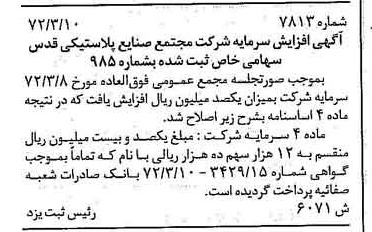 شماره ۷۸۱۳ ۷۲/۳/۱۰
آگهی افزایش سرمایه شرکت مجتمع صنایع پلاستیکی قدس
سهامی خاص ثبت شده بشماره ۹۸۵
بموجب صورتجلسه مجمع عمومی فوق‌العاده مورخ ۷۲/۳/۸
سرمایه شرکت بمیزان یکصد میلیون ریال افزایش یافت که در نتیجه
ماده ۴ اساسنامه بشرح زیر اصلاح شد.
ماده ۴ سرمایه شرکت : مبلغ یکصد و بیست میلیون ریال
منقسم به ۱۲ هزار سهم ده هزار ریالی با نام که تماماً بموجب
گواهی شماره ۳۴۲۹/۱۵ - ۷۲/۳/۱۰ بانک صادرات شعبه
صفائیه پرداخت گردیده است.
ش ۶۰۷۱ رئیس ثبت یزد